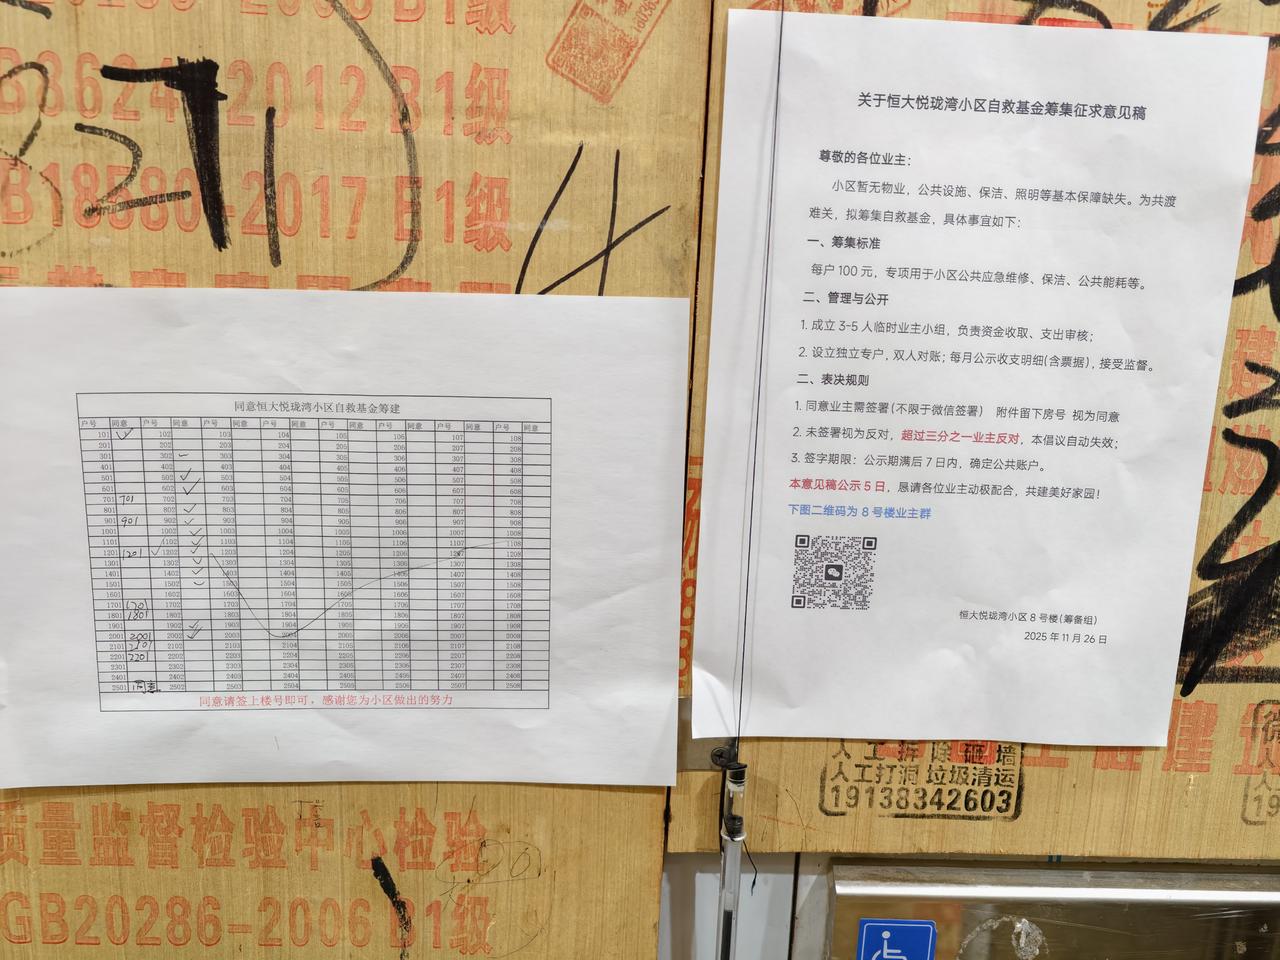 B3624-2012 B1级
B18580-2017 E1级
关于恒大悦珑湾小区自救基金筹集征求意见稿
尊敬的各位业主：
小区暂无物业，公共设施、保洁、照明等基本保障缺失。为共渡
难关，拟筹集自救基金，具体事宜如下：
一、筹集标准
每户 100 元，专项用于小区公共应急维修、保洁、公共能耗等。
二、管理与公开
1. 成立 3-5 人临时业主小组，负责资金收取、支出审核；
2. 设立独立专户，双人对账；每月公示收支明细(含票据)，接受监督。
二、表决规则
1. 同意业主需签署（不限于微信签署） 附件留下房号 视为同意
2. 未签署视为反对，超过三分之一业主反对，本倡议自动失效；
3. 签字期限：公示期满后 7 日内，确定公共账户。
本意见稿公示 5 日，恳请各位业主动极配合，共建美好家园！
下图二维码为 8 号楼业主群
恒大悦珑湾小区 8 号楼（筹备组）
2025 年 11 月 26 日
同意恒大悦珑湾小区自救基金筹建
户号 同意 户号 同意 户号 同意 户号 同意 户号 同意 户号 同意 户号 同意 户号
101 102 103 104 105 106 107 108
201 202 203 204 205 206 207 208
301 302 303 304 305 306 307 308
401 402 403 404 405 406 407 408
501 502 503 504 505 506 507 508
601 602 603 604 605 606 607 608
701 701 702 703 704 705 706 707 708
801 802 803 804 805 806 807 808
901 901 902 903 904 905 906 907 908
1001 1002 1003 1004 1005 1006 1007 1008
1101 1102 1103 1104 1105 1106 1107 1108
1201 1201 1202 1203 1204 1205 1206 1207 1208
1301 1302 1303 1304 1305 1306 1307 1308
1401 1402 1403 1404 1405 1406 1407 1408
1501 1502 1503 1504 1505 1506 1507 1508
1601 1602 1603 1604 1605 1606 1607 1608
1701 1701 1702 1703 1704 1705 1706 1707 1708
1801 1801 1802 1803 1804 1805 1806 1807 1808
1901 1902 1903 1904 1905 1906 1907 1908
2001 2001 2002 2003 2004 2005 2006 2007 2008
2101 2101 2102 2103 2104 2105 2106 2107 2108
2201 2201 2202 2203 2204 2205 2206 2207 2208
2301 2302 2303 2304 2305 2306 2307 2308
2401 2402 2403 2404 2405 2406 2407 2408
2501 同意 2502 2503 2504 2505 2506 2507 2508
同意请签上楼号即可，感谢您为小区做出的努力
人工拆除砸墙
人工打洞 垃圾清运
19138342603
质量监督检验中心检验
GB20286-2006 B1级